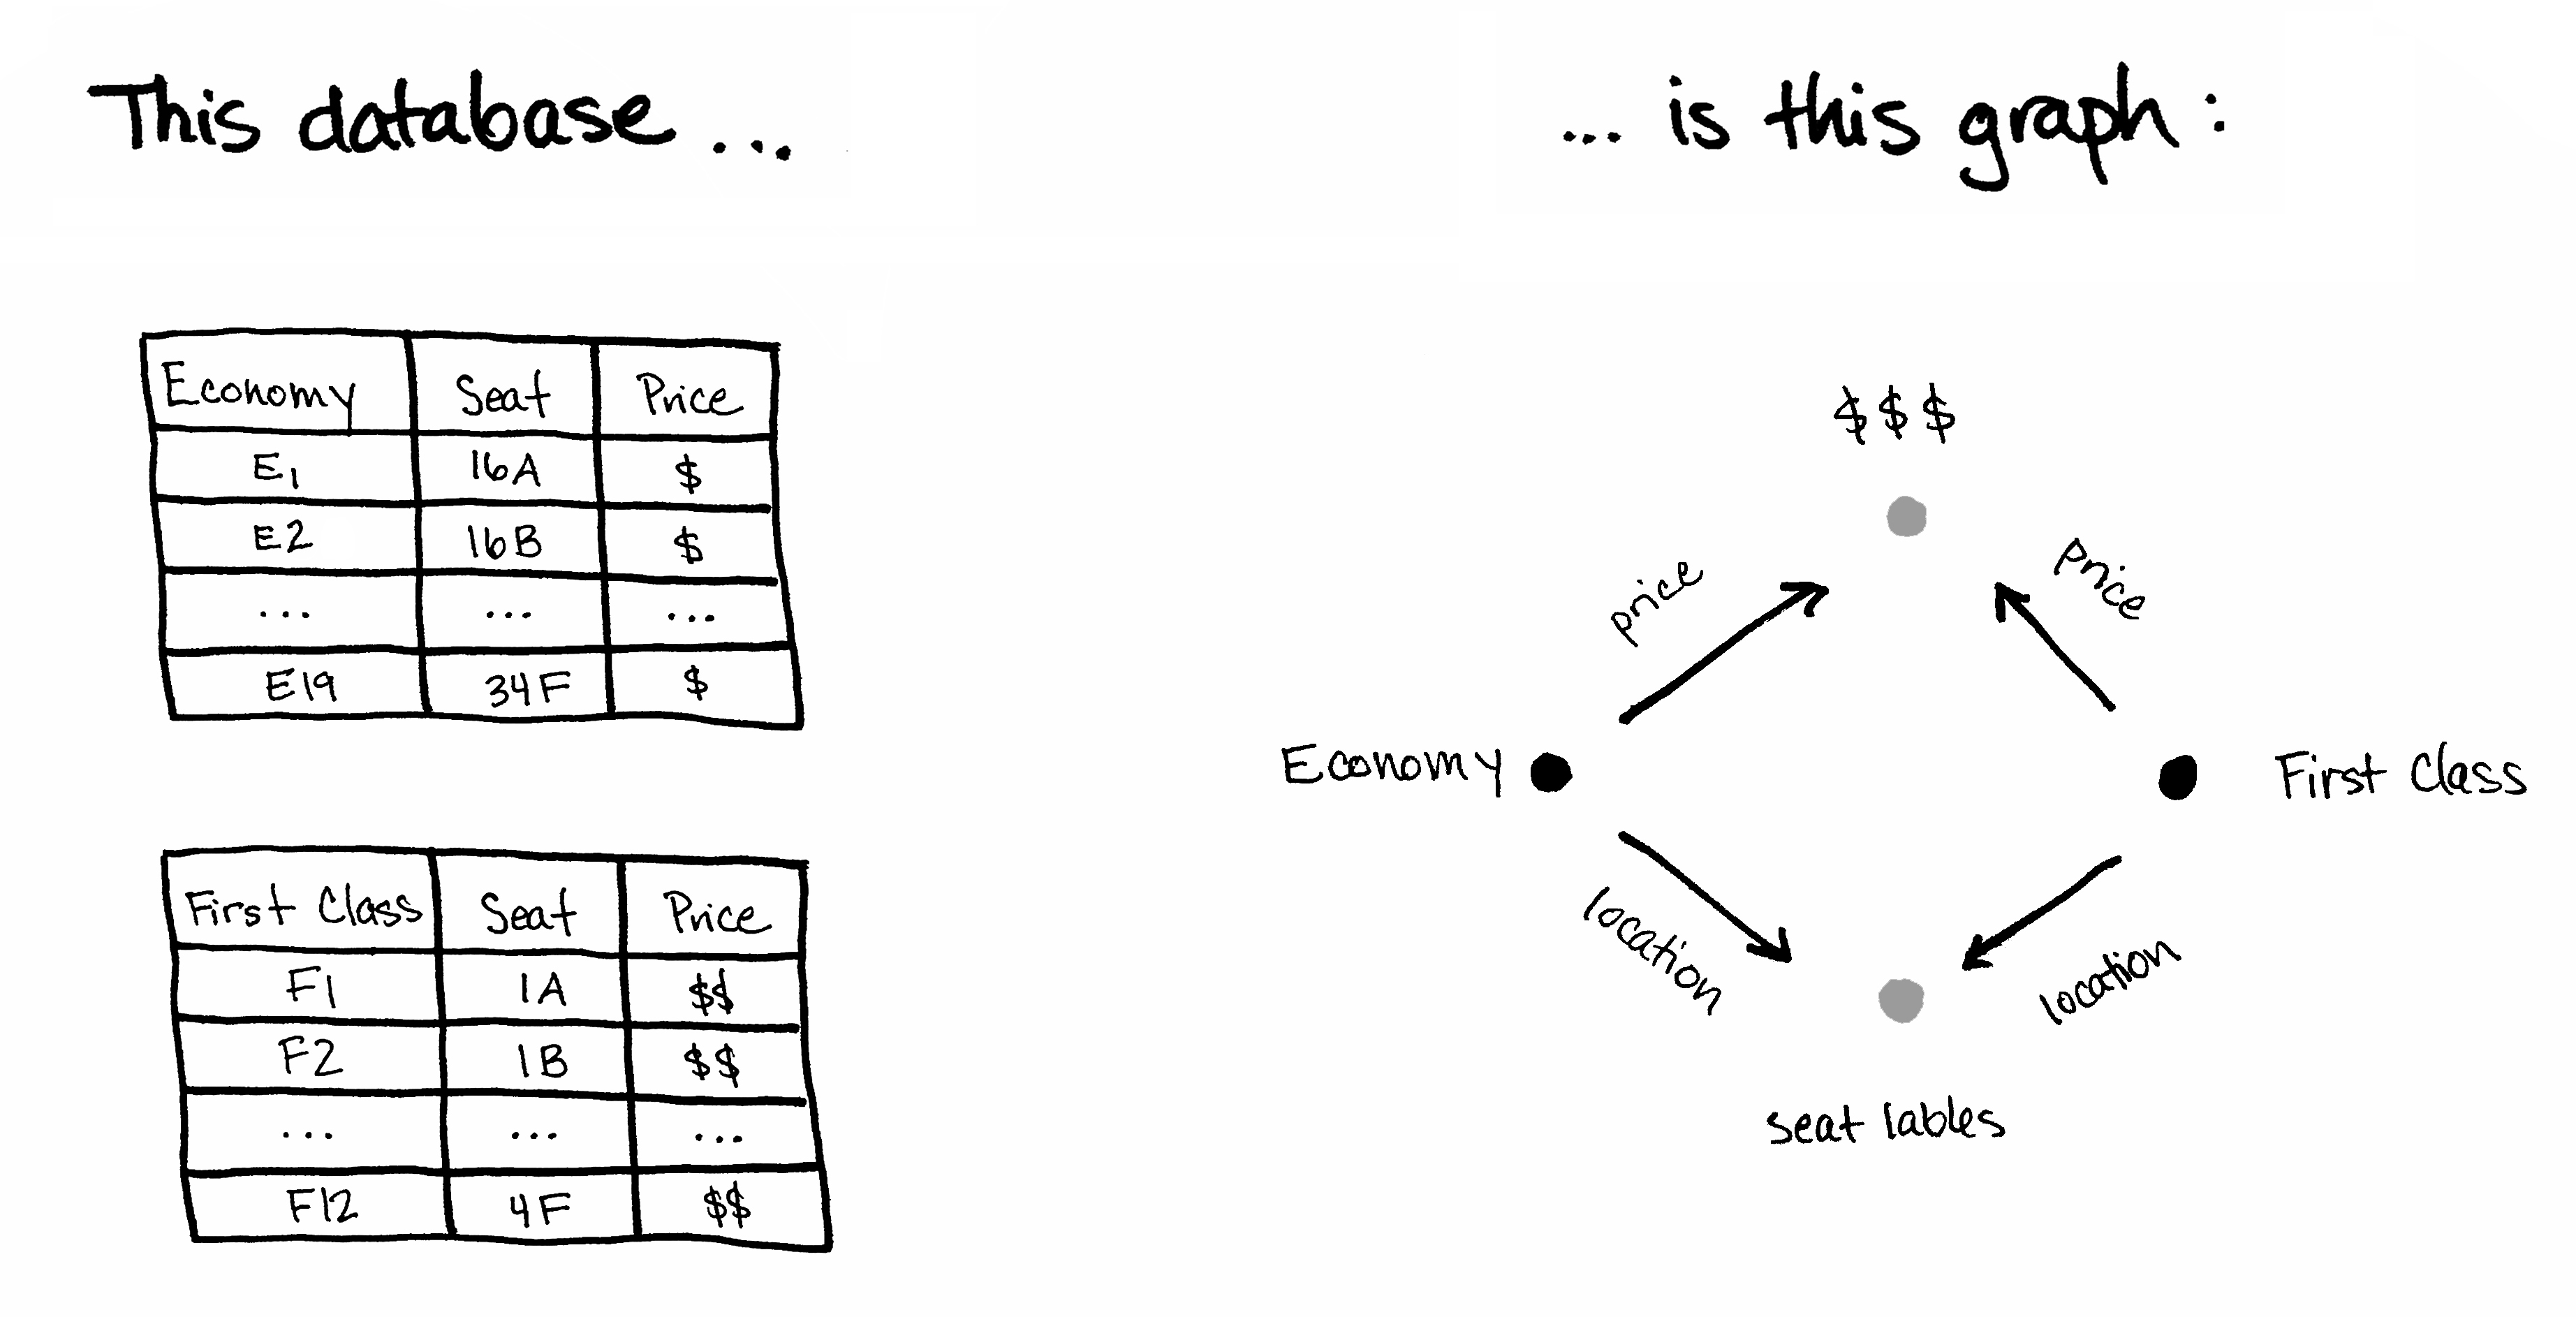 This database ...
... is this graph :
Economy Seat Price
E1 16A $
E2 16B $
... ... ...
E19 34F $
First Class Seat Price
F1 1A $$
F2 1B $$
... ... ...
F12 4F $$
$$$
price
Price
Economy
First Class
location
location
seat lables